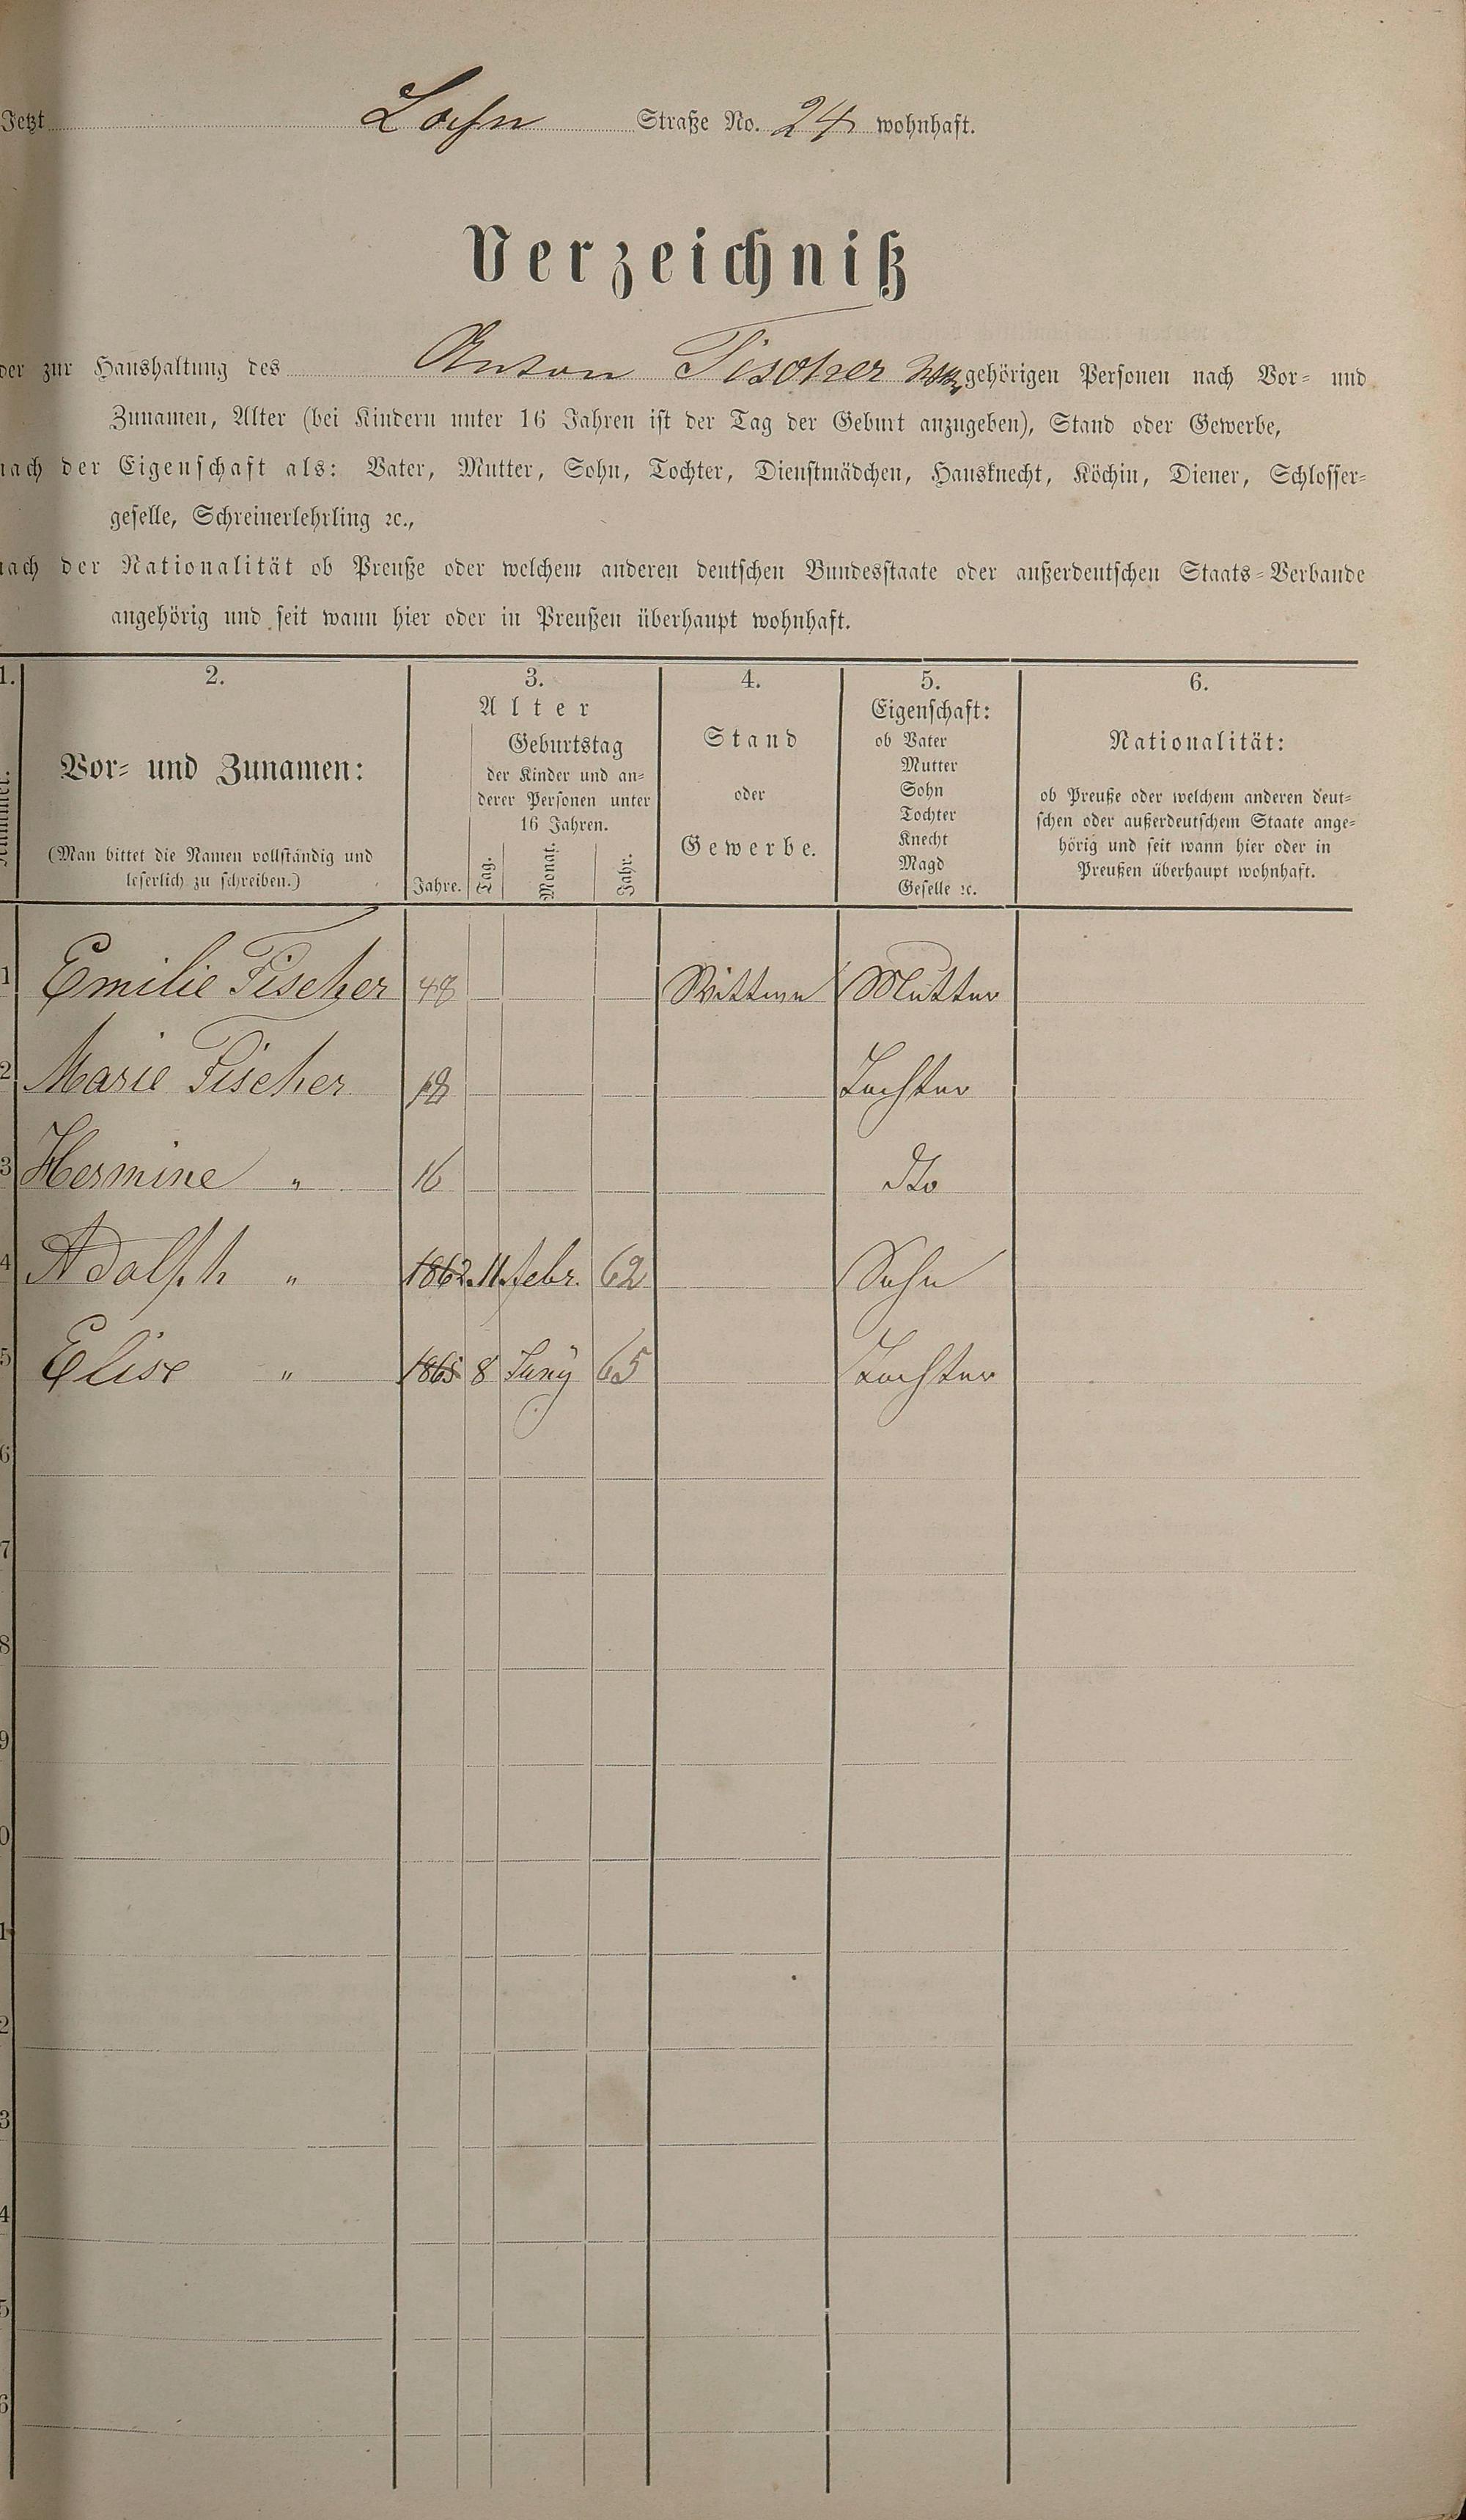 Jetzt Löhn Straße No. 24 wohnhaft.
Verzeichniß
der zur Haushaltung des Anton Fischer Wwe gehörigen Personen nach Vor- und
Zunamen, Alter (bei Kindern unter 16 Jahren ist der Tag der Geburt anzugeben), Stand oder Gewerbe,
nach der Eigenschaft als: Vater, Mutter, Sohn, Tochter, Dienstmädchen, Hausknecht, Köchin, Diener, Schlosser-
geselle, Schreinerlehrling ꝛc.,
nach der Nationalität ob Preuße oder welchem anderen deutschen Bundesstaate oder außerdeutschen Staats-Verbande
angehörig und seit wann hier oder in Preußen überhaupt wohnhaft.
1. 2. 3. 4. 5. 6.
Nummer.
Vor- und Zunamen:
(Man bittet die Namen vollständig und
leserlich zu schreiben.)
Alter
Geburtstag
der Kinder und an-
derer Personen unter
16 Jahren.
Jahre. Tag. Monat. Jahr.
Stand
oder
Gewerbe.
Eigenschaft:
ob Vater
Mutter
Sohn
Tochter
Knecht
Magd
Geselle ꝛc.
Nationalität:
ob Preuße oder welchem anderen deut-
schen oder außerdeutschem Staate ange-
hörig und seit wann hier oder in
Preußen überhaupt wohnhaft.
1 Emilie Fischer 48 Wittwe Mutter
2 Marie Fischer 18 Tochter
3 Hermine " 16 dto
4 Adolph " 1862 11. Febr. 62 Sohn
5 Elise " 1865 8 Juny 65 Tochter
6
7
8
9
0
1
2
3
4
5
6